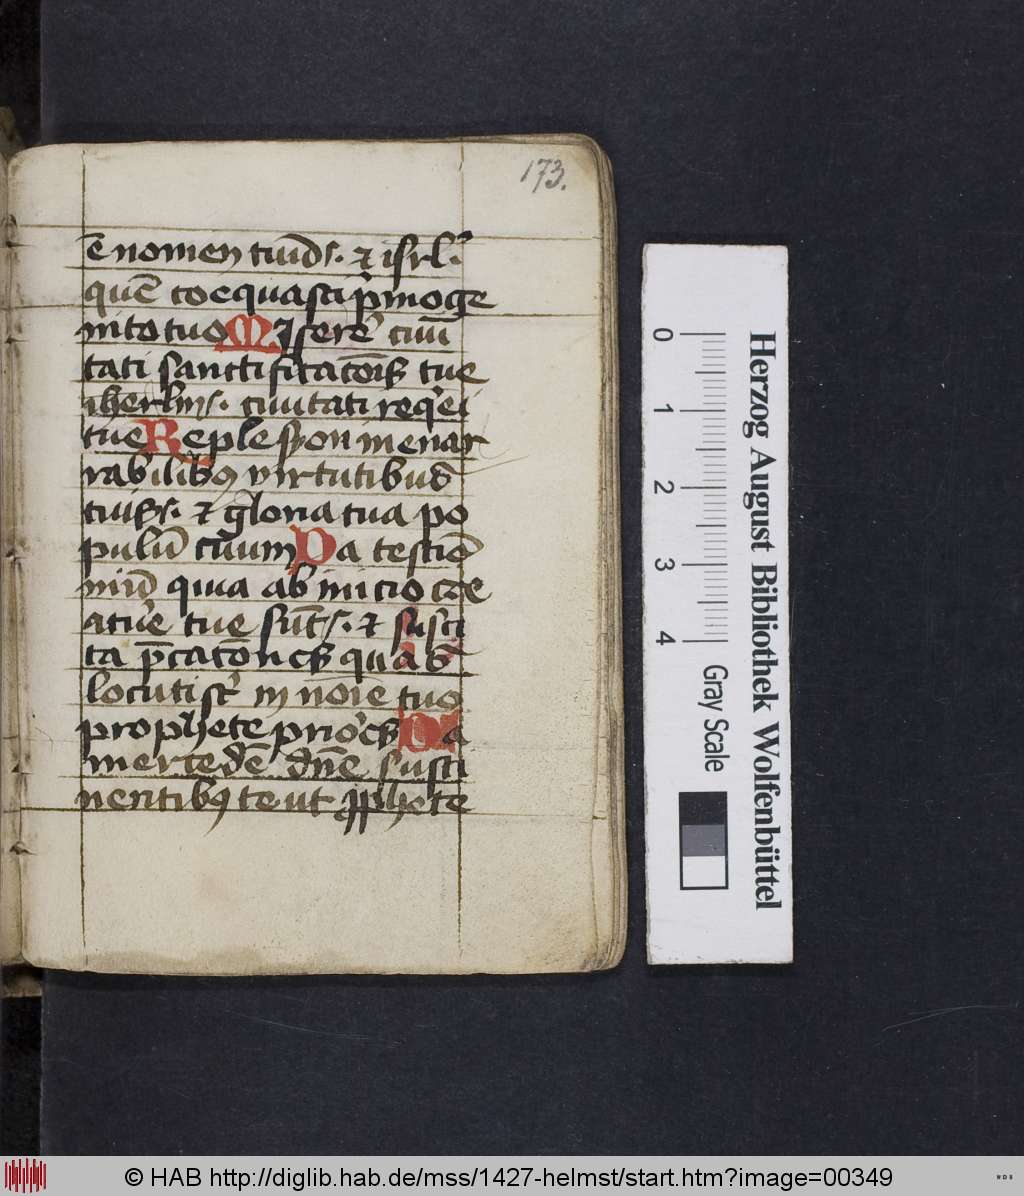 173.
ē nomen tuūds. ⁊ isrl̄.
quē coequasti p̄moge
nito tuo Miserere ciui
tati sanctificatōis tue
iherlms. ciuitati reqͥei
tue Reple syon inenar
rabilibꝰ virtutibus
tuis. ⁊ gloria tua po
pulū tuum Da testiōe
niū quia ab inicio cre
ature tue sūt. ⁊ susci
ta p̄catōnes quas
locuti sūt in noīe tuo
prophete priores Da
mercedē dn̄e susti
nentibꝰ te ut ꝓphete
0 1 2 3 4
Gray Scale
Herzog August Bibliothek Wolfenbüttel
© HAB http://diglib.hab.de/mss/1427-helmst/start.htm?image=00349